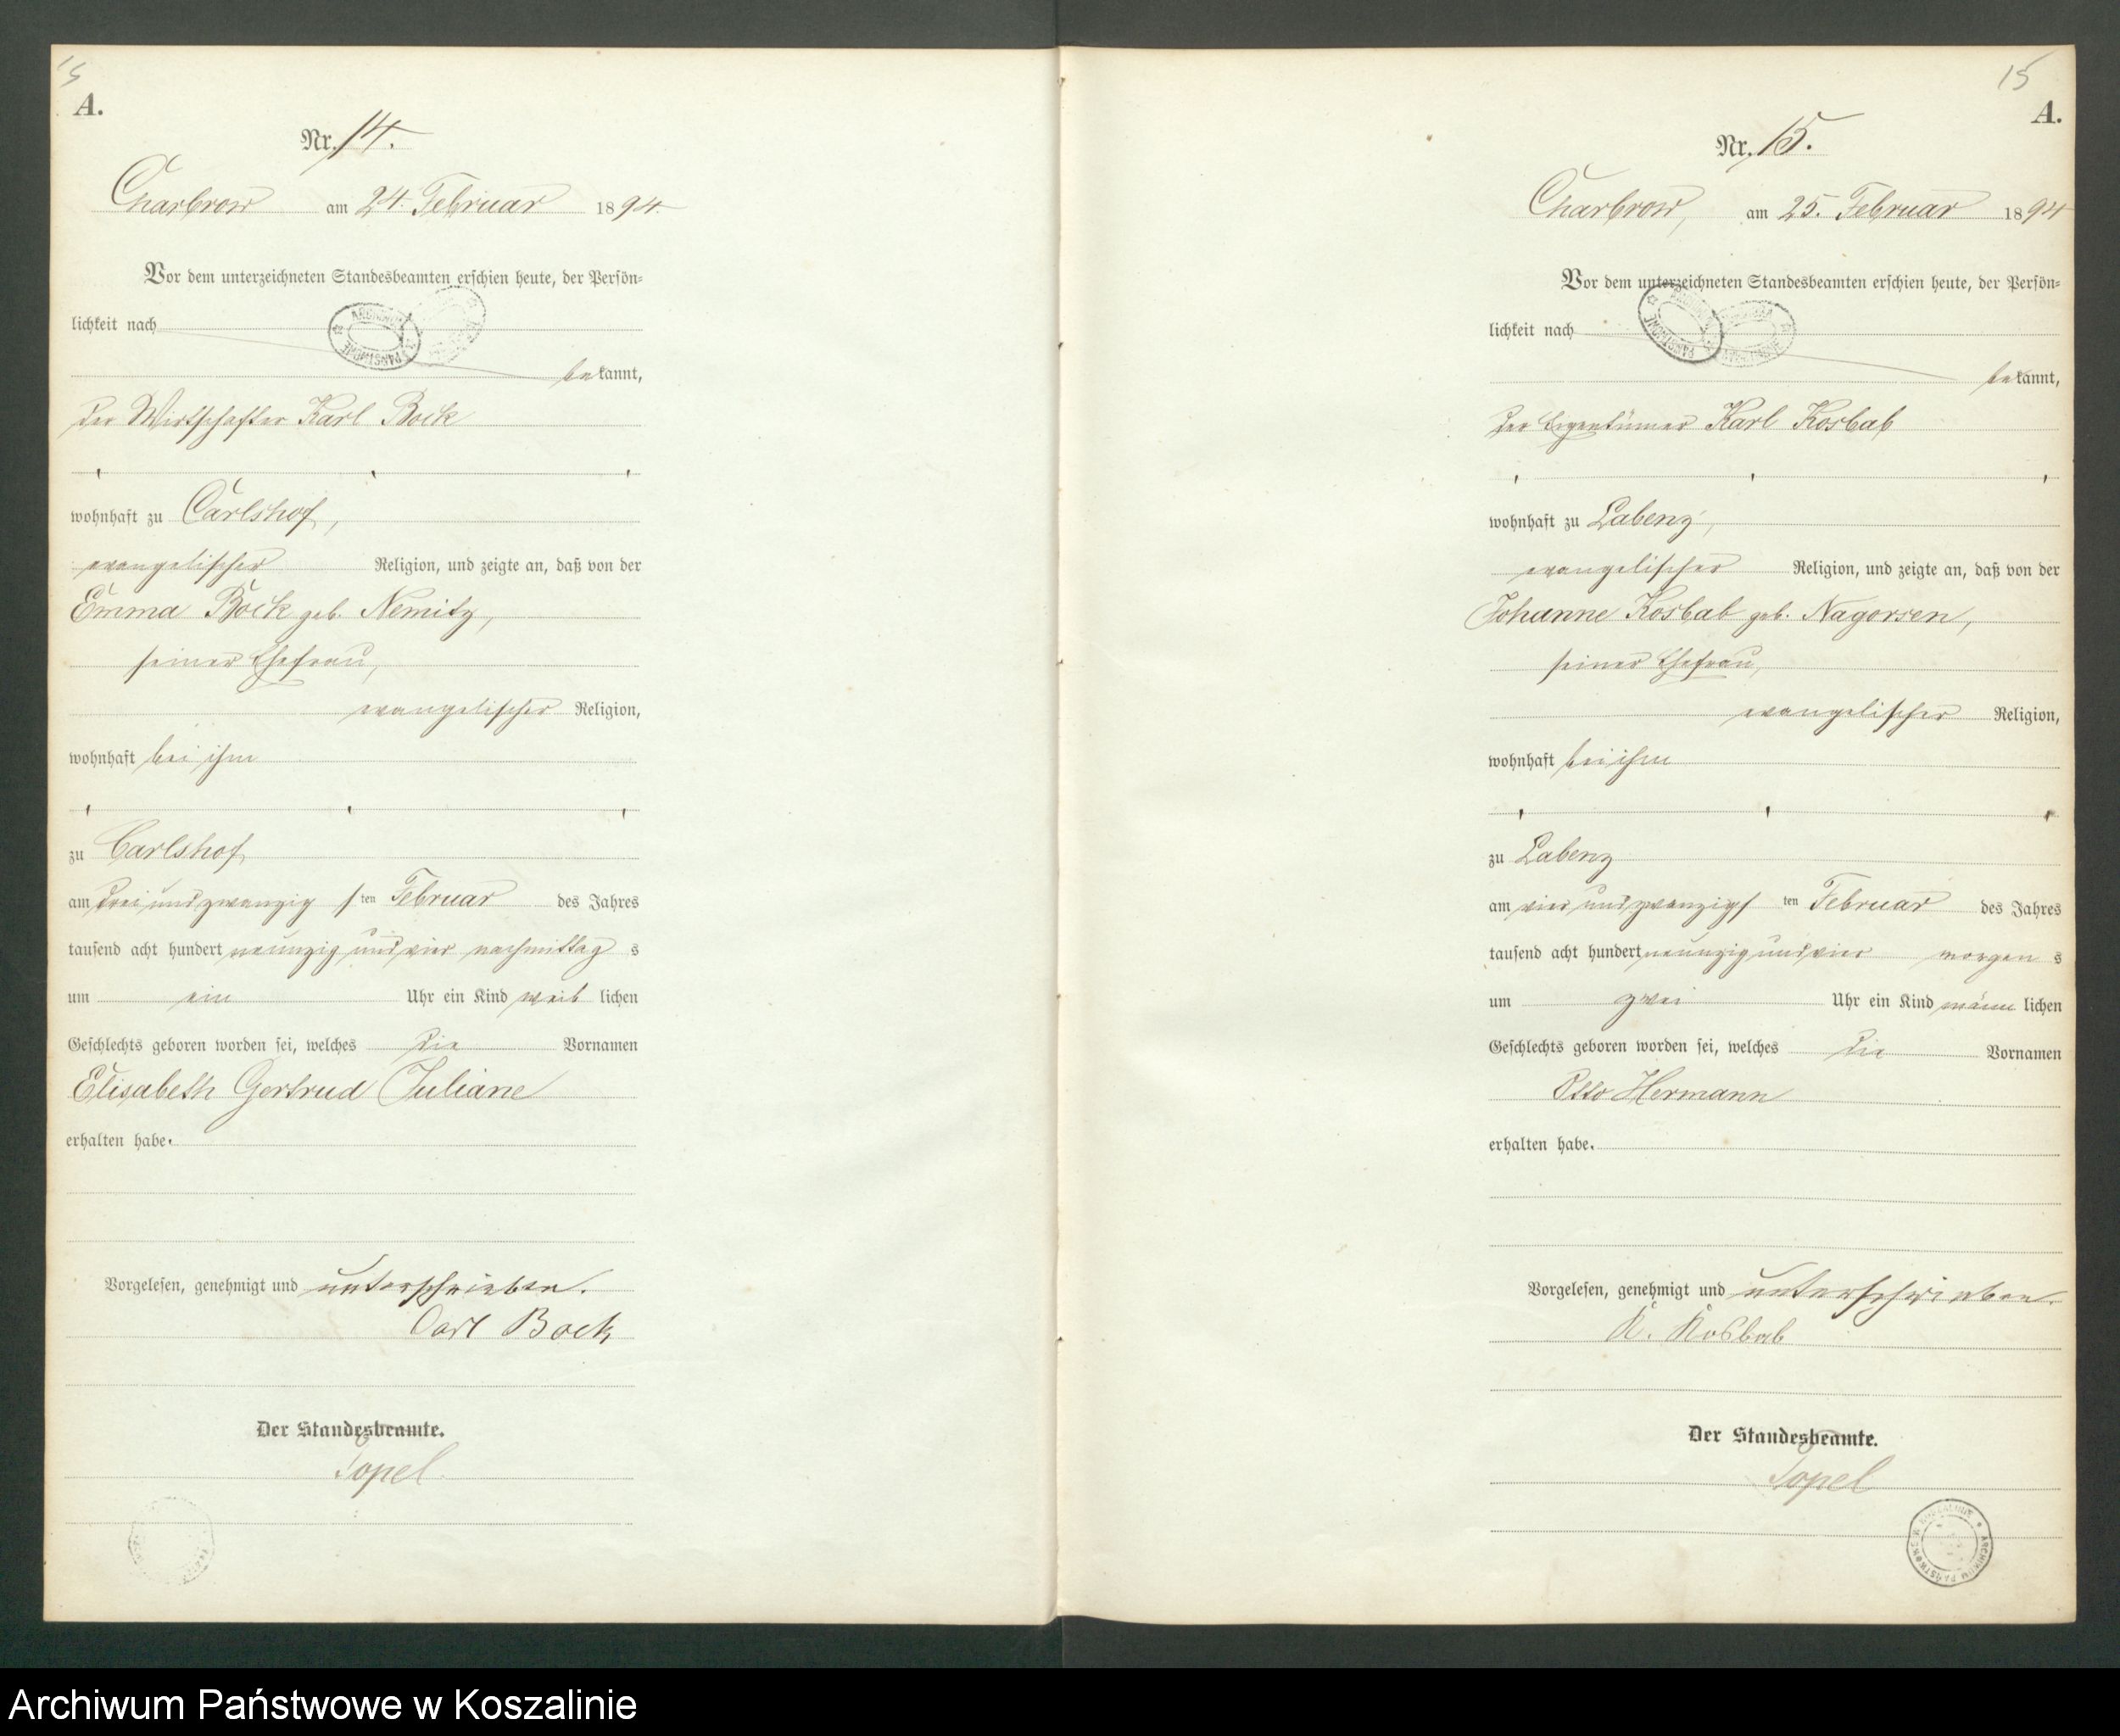 15
A.
Nr. 14.
Charbrow am 24. Februar 1894.
Vor dem unterzeichneten Standesbeamten erschien heute, der Persön=
lichkeit nach
bekannt,
der Wirtschafter Karl Bock
wohnhaft zu Carlshof,
evangelischer Religion, und zeigte an, daß von der
Emma Bock geb. Nemitz,
seiner Ehefrau,
evangelischer Religion,
wohnhaft bei ihm
zu Carlshof
am drei und zwanzig sten Februar des Jahres
tausend acht hundert neunzig und vier nachmittag s
um ein Uhr ein Kind weib lichen
Geschlechts geboren worden sei, welches die Vornamen
Elisabeth Gertrud Juliane
erhalten habe.
Vorgelesen, genehmigt und unterschrieben.
Carl Bock
Der Standesbeamte.
Topel
15
A.
Nr. 15.
Charbrow, am 25. Februar 1894
Vor dem unterzeichneten Standesbeamten erschien heute, der Persön=
lichkeit nach
bekannt,
der Eigentümer Karl Kosbab
wohnhaft zu Labenz,
evangelischer Religion, und zeigte an, daß von der
Johanne Kosbab geb. Nagorsen,
seiner Ehefrau,
evangelischer Religion,
wohnhaft bei ihm
zu Labenz
am vier und zwanzigs ten Februar des Jahres
tausend acht hundert neunzig und vier morgen s
um zwei Uhr ein Kind männ lichen
Geschlechts geboren worden sei, welches die Vornamen
Otto Hermann
erhalten habe.
Vorgelesen, genehmigt und unterschrieben.
K. Kosbab
Der Standesbeamte.
Topel
ARCHIWUM PAŃSTWOWE W KOSZALINIE
Archiwum Państwowe w Koszalinie